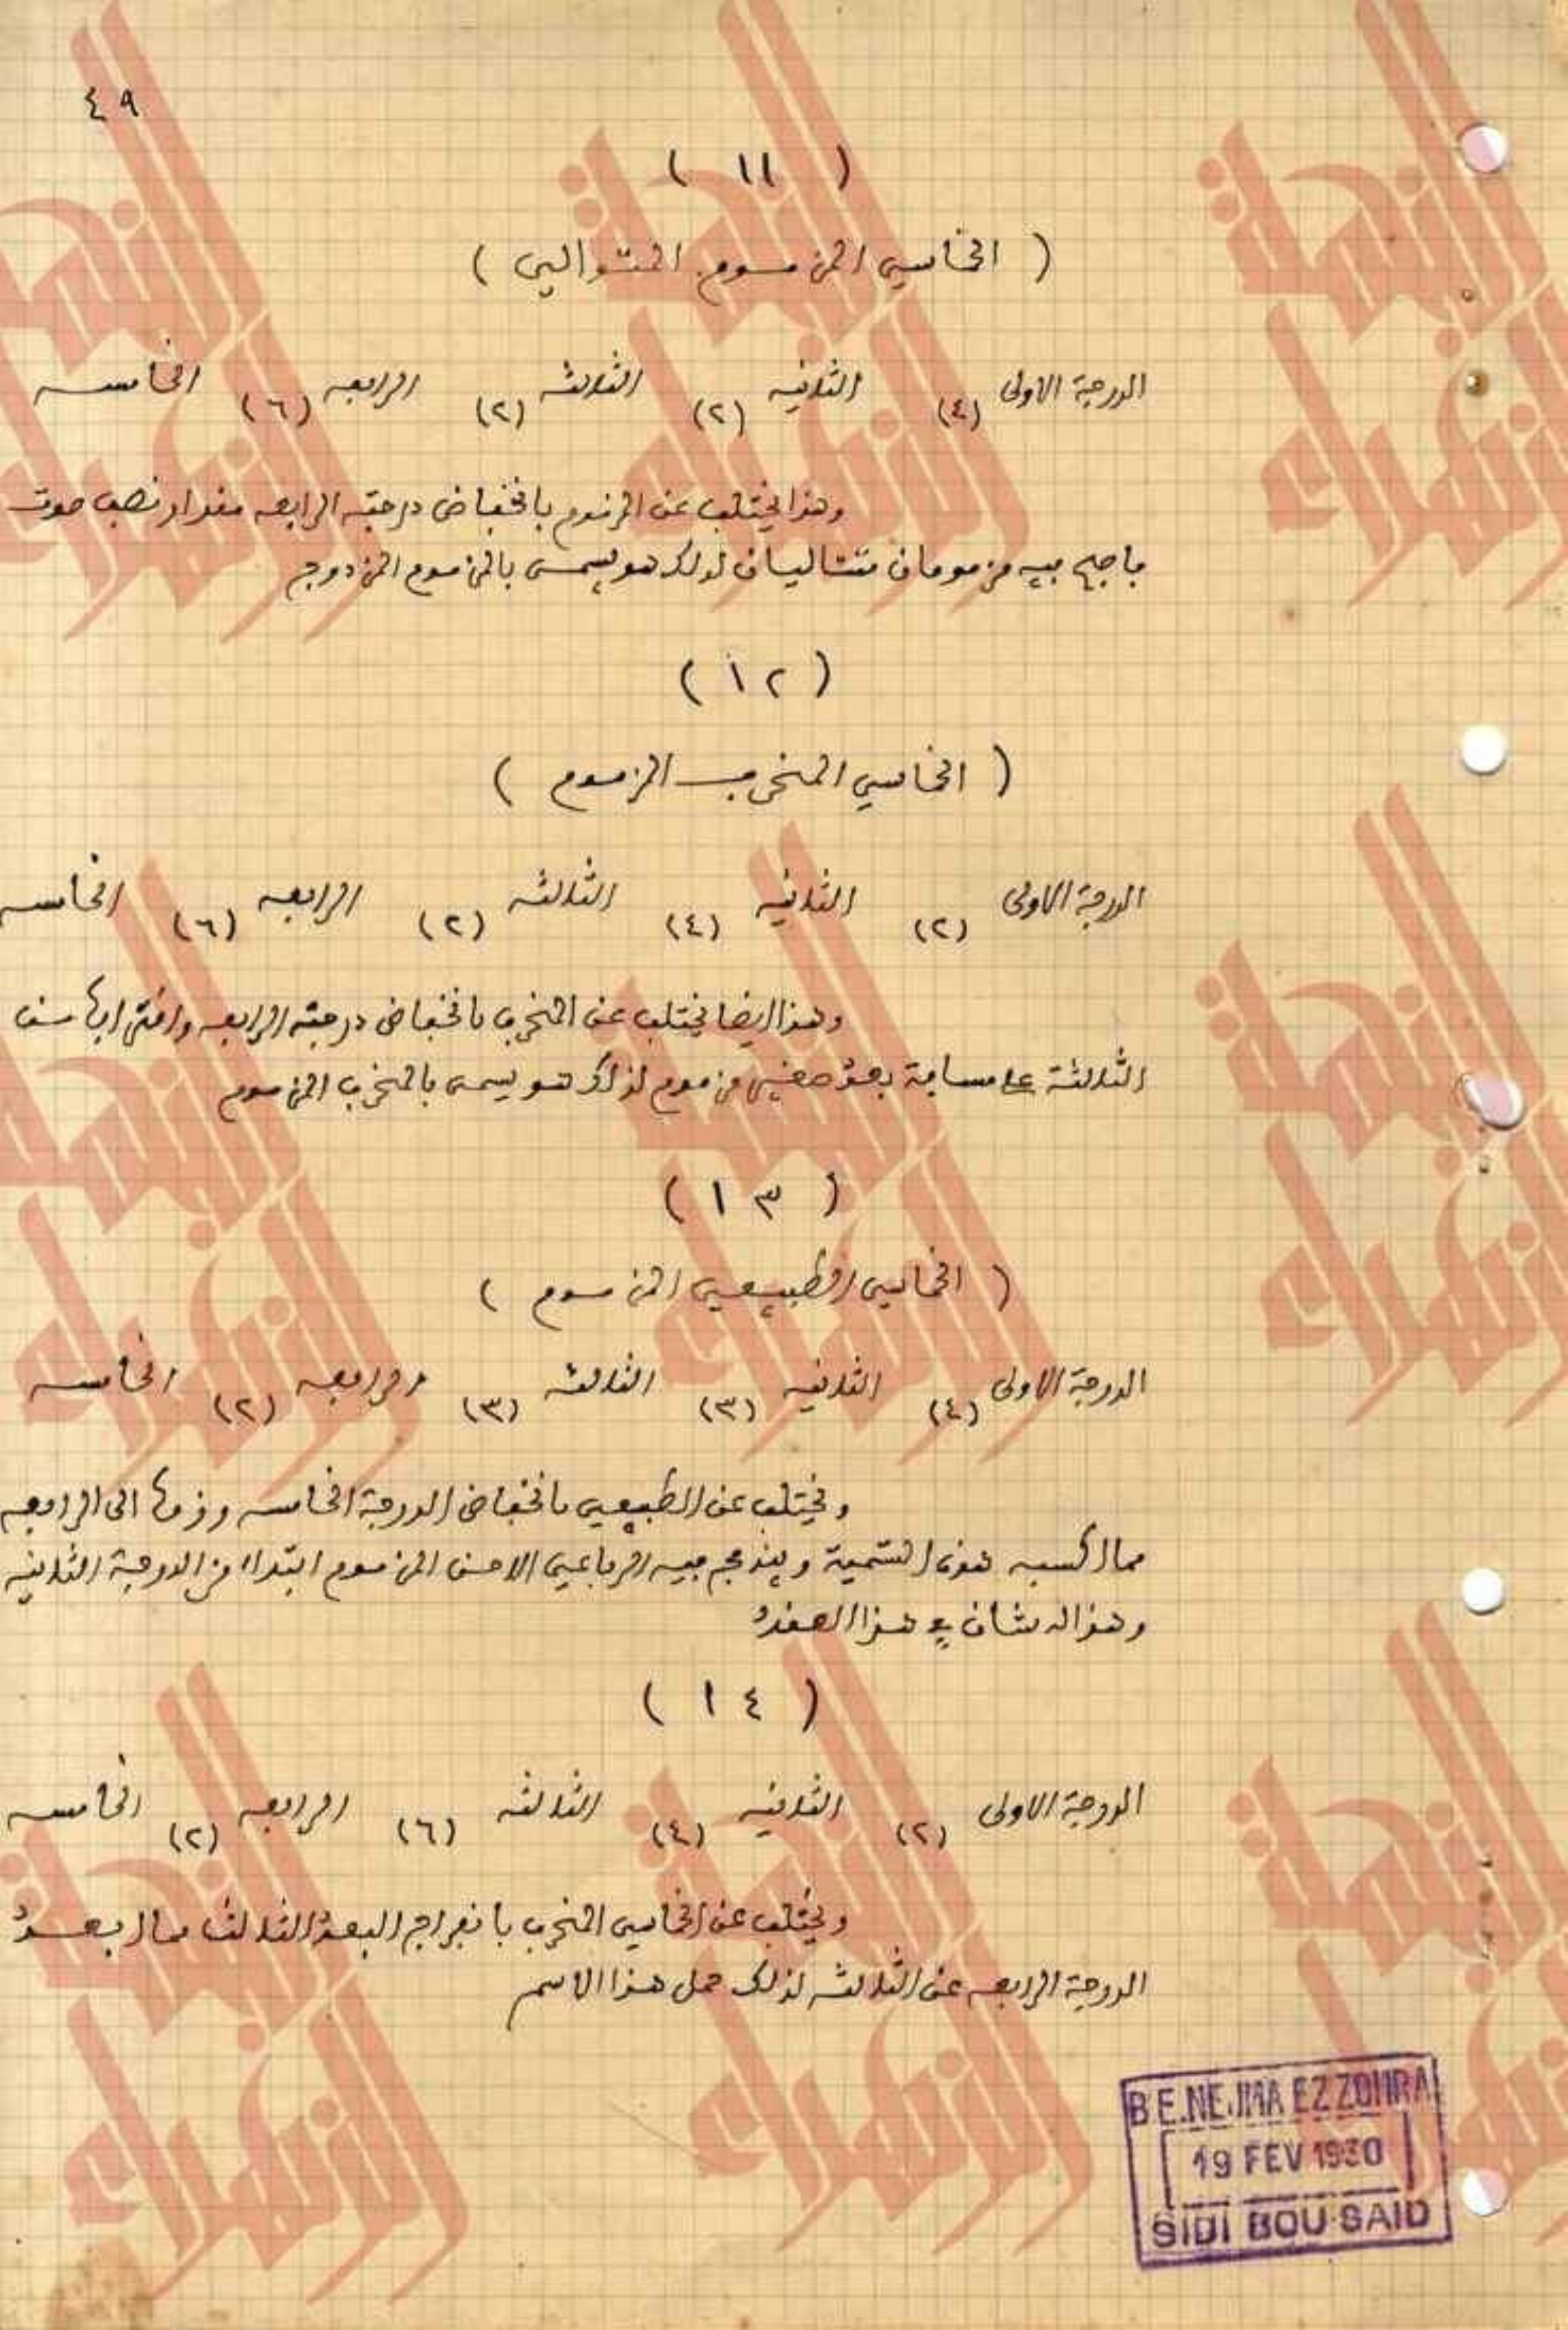 ٤٩
( ١١ )
( الخماسي المزموم المتوالي )
الدرجة الاولى (٤) الثانيه (٢) الثالثه (٢) الرابعه (٦) الخامسه
وهذا يختلف عن المزموم بانخفاض درجته الرابعه مقدار نصف صوت
فاجتمع فيه مزمومان متتاليان لذلك هو يسمى بالمزموم المزدوج
( ١٢ )
( الخماسي المنحرف المزموم )
الدرجة الاولى (٢) الثانيه (٤) الثالثه (٢) الرابعه (٦) الخامسه
وهذا ايضا يختلف عن المنحرف بانخفاض درجته الرابعه واقترابها من
الثالثة على مسافة بعد صغير مزموم لذلك هو يسمى بالمنحرف المزموم
( ١٣ )
( الخماسي الطبيعي المزموم )
الدرجة الاولى (٤) الثانيه (٣) الثالثه (٣) الرابعه (٢) الخامسه
ويختلف عن الطبيعي بانخفاض الدرجة الخامسه وزمها الى الرابعه
مما اكسبه هذه التسمية ويندمج فيه الرباعي الاحسن المزموم ابتداء من الدرجة الثانيه
وهذا له شان في هذا العقد
( ١٤ )
الدرجة الاولى (٢) الثانيه (٤) الثالثه (٦) الرابعه (٢) الخامسه
ويختلف عن الخماسي المنحرف بانفراج البعد الثالث مما ابعد
الدرجة الرابعه عن الثالثه لذلك حمل هذا الاسم
B.E.NEJMA EZZOHRA
19 FEV 1930
SIDI BOU-SAID
النجمة الزهراء